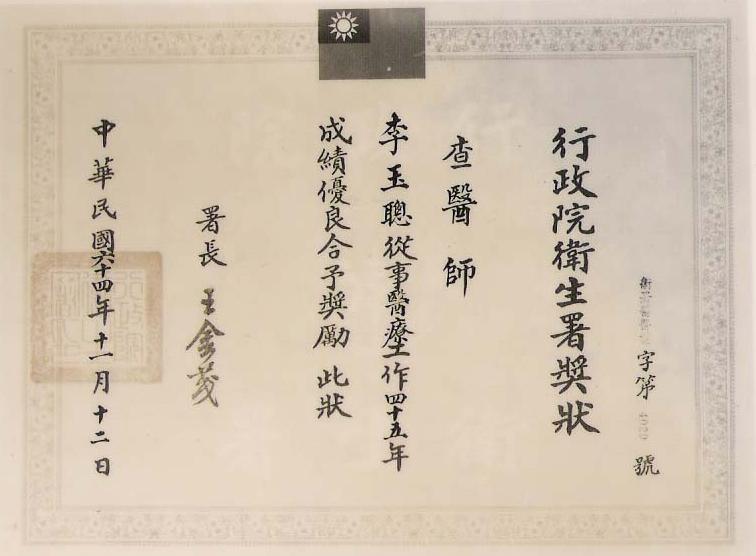 行政院衛生署獎狀
字第
號
查醫師
李玉聰從事醫療工作四十五年
成績優良合予獎勵此狀
署長 王金茂
中華民國六十四年十一月十二日